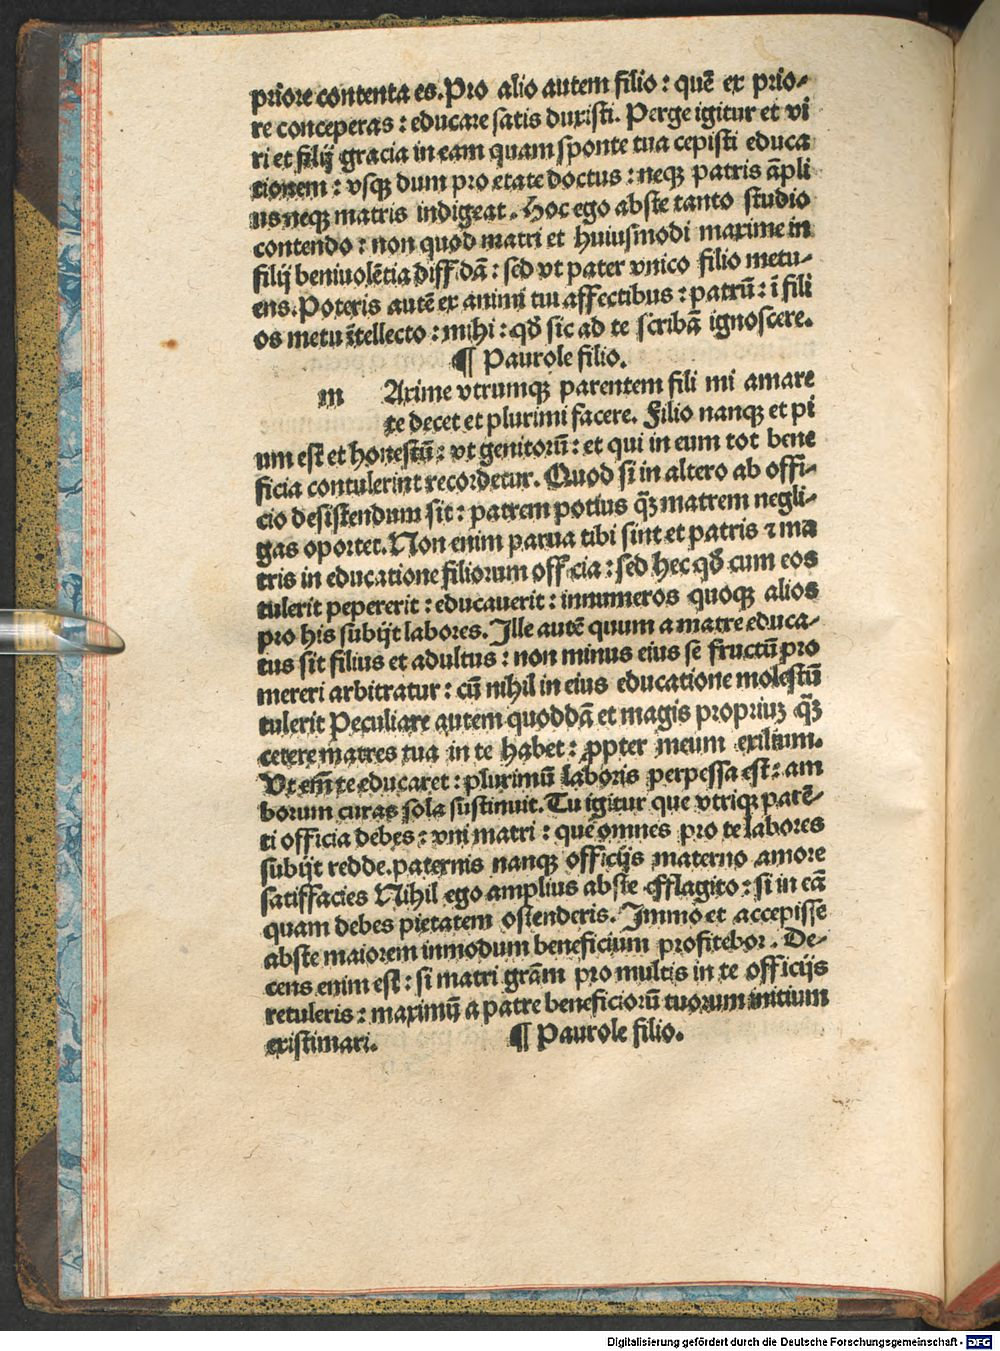 priore contenta es. Pro alio autem filio : quē ex prio-
re conceperas : educare satis duxisti. Perge igitur et vi
ri et filij gracia in eam quam sponte tua cepisti educa
tionem : vsqꝫ dum pro etate doctus : neqꝫ patris āpli
us neqꝫ matris indigeat. Hoc ego abste tanto studio
contendo : non quod matri et huiusmodi maxime in
filij beniuolētia diffidā : sed vt pater vnico filio metu-
ens. Poteris autē ex animi tui affectibus : patrū : ī fili
os metu ītellecto : mihi : qđ sic ad te scribā ignoscere.
¶ Paurole filio.
m Axime vtrumqꝫ parentem fili mi amare
te decet et plurimi facere. Filio nanqꝫ et pi
um est et honestū : vt genitorū : et qui in eum tot bene
ficia contulerint recordetur. Quod si in altero ab offi-
cio desistendum sit : patrem potius qꝫ̄ matrem negli-
gas oportet. Non enim parua tibi sint et patris ⁊ ma
tris in educatione filiorum officia : sed hec qđ cum eos
tulerit pepererit : educauerit : innumeros quoqꝫ alios
pro his subijt labores. Ille autē quum a matre educa-
tus sit filius et adultus : non minus eius se fructū pro
mereri arbitratur : cū nihil in eius educatione molestū
tulerit Peculiare autem quoddā et magis propriuꝫ qꝫ̄
cetere matres tua in te habet : ꝓpter meum exilium.
Vt em̄ te educaret : plurimū laboris perpessa est : am
borum curas sola sustinuit. Tu igitur que vtriqꝫ parē-
ti officia debes : vni matri : que omnes pro te labores
subijt redde. paternis nanqꝫ officijs materno amore
satisfacies Nihil ego amplius abste efflagito : si in eā
quam debes pietatem ostenderis. Immo et accepisse
abste maiorem inmodum beneficium profitebor. De-
cens enim est : si matri grām pro multis in te officijs
retuleris : maximū a patre beneficiorū tuorum initium
existimari. ¶ Paurole filio.
Digitalisierung gefördert durch die Deutsche Forschungsgemeinschaft - DFG